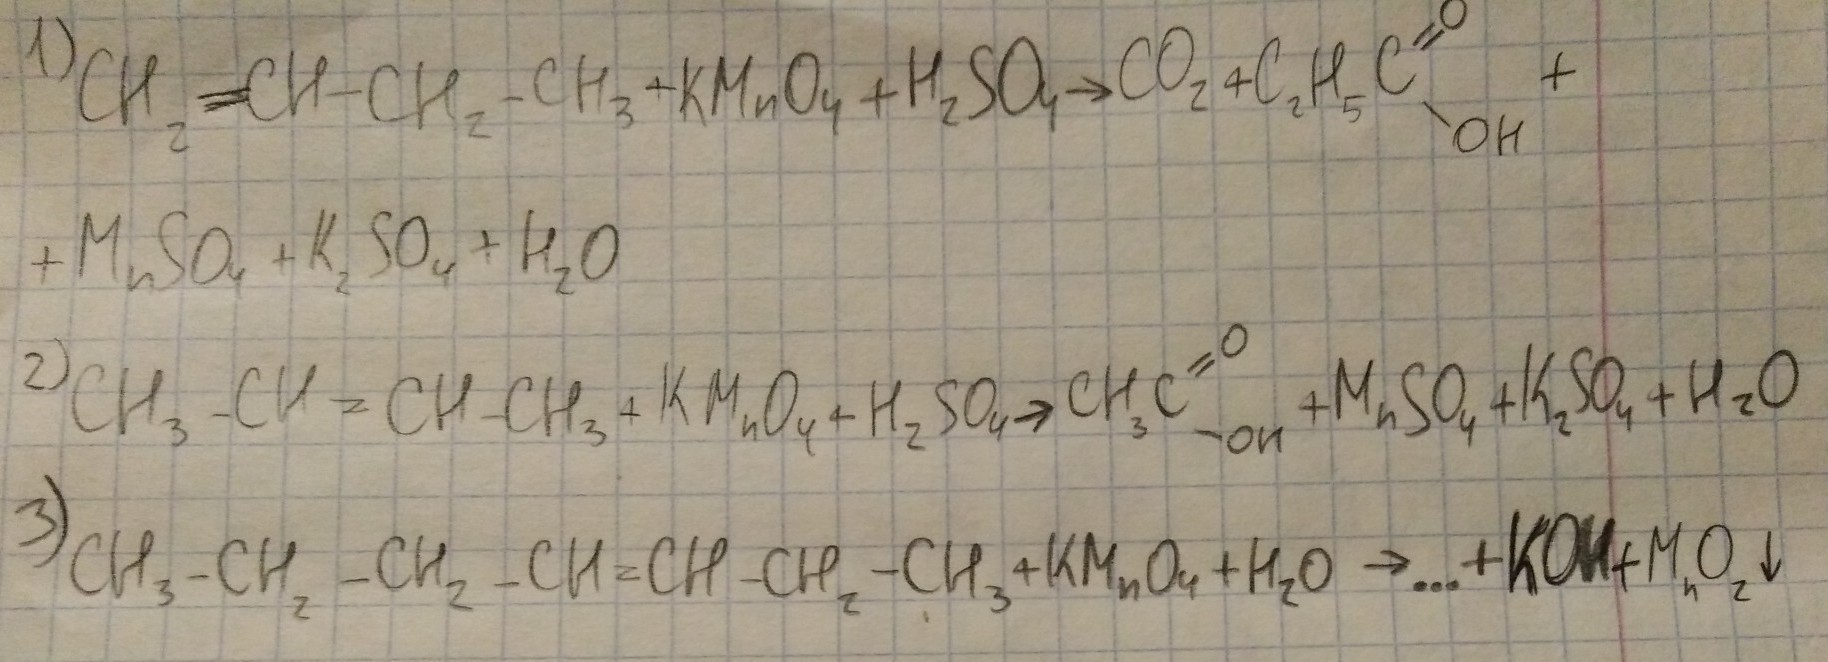 1) CH₂=CH-CH₂-CH₃+KMnO₄+H₂SO₄→CO₂+C₂H₅C(=O)-OH +
+MnSO₄+K₂SO₄+H₂O
2) CH₃-CH=CH-CH₃+KMnO₄+H₂SO₄→CH₃C(=O)-OH+MnSO₄+K₂SO₄+H₂O
3) CH₃-CH₂-CH₂-CH=CH-CH₂-CH₃+KMnO₄+H₂O→...+KOH+MnO₂↓